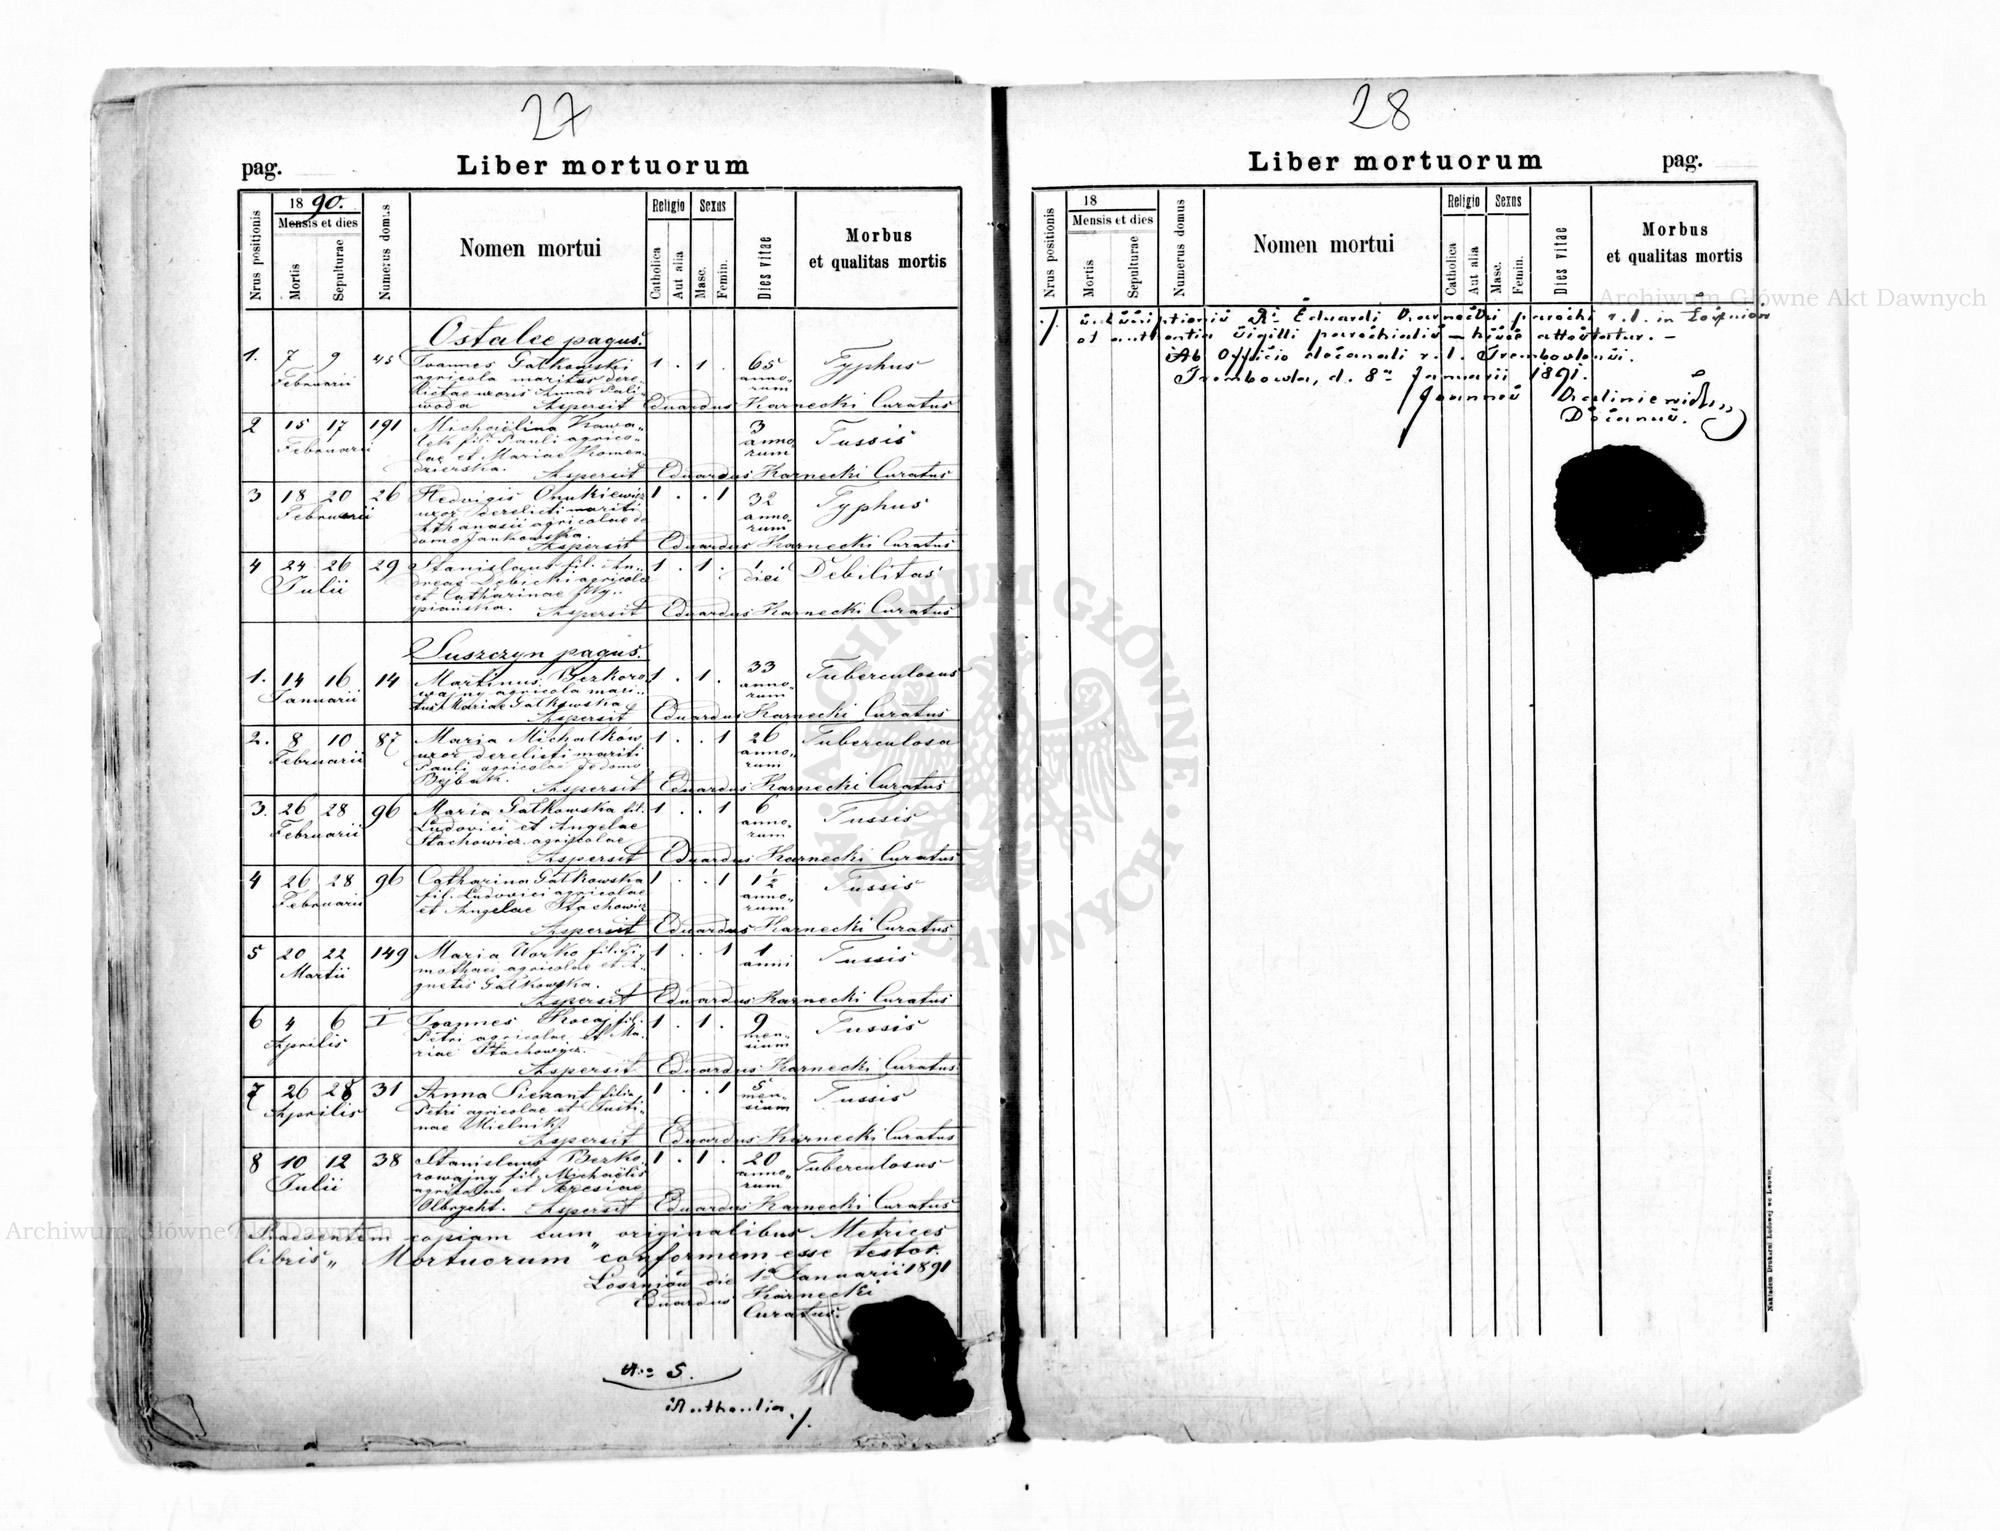 27
pag.
Liber mortuorum
Nrus positionis
18 90.
Mensis et dies
Mortis
Sepulturae
Numerus domus
Nomen mortui
Religio
Catholica
Aut alia
Sexus
Masc.
Femin.
Dies vitae
Morbus
et qualitas mortis
Ostalce pagus.
1. 7 9 45 Joannes Gatkowski 1 . 1 . 65 Typhus
Februarii agricola maritus dere- anno-
lictae uxoris Annae Pali- rum
woda Aspersit Eduardus Karnecki Curatus
2 15 17 191 Michaëlina Kowa- 3 Tussis
Februarii lek fil. Pauli agrico- anno
lae et Mariae Komen- rum
dzierska. Aspersit Eduardus Karnecki Curatus
3 18 20 26 Hedvigis Onukiewicz 1 . . 1 32 Typhus
Februarii uxor derelicti mariti anno-
Athanasii agricolae de rum
domo Jankowska.
Aspersit Eduardus Karnecki Curatus
4 24 26 29 Stanislaus fil. An- 1 . 1 . 1 Debilitas
Julii dreae Debicki agricolae diei
et Catharinae
Aspersit Eduardus Karnecki Curatus
Suszczyn pagus.
1. 14 16 14 Martinus Bezkoro 1 . 1 . 33 Tuberculosus
Januarii wajny agricola mari- anno-
tus Mariae Gatkowska rum
Aspersit Eduardus Karnecki Curatus
2. 8 10 87 Maria Michalków 1 . . 1 26 Tuberculosa
Februarii uxor derelicti mariti anno-
Pauli agricolae de domo rum
Bejbuk. Aspersit Eduardus Karnecki Curatus
3. 26 28 96 Maria Gatkowska fil. 1 . . 1 6 Tussis
Februarii Ludovici et Angelae anno-
Stachowicz agricolae rum
Aspersit Eduardus Karnecki Curatus
4 26 28 96 Catharina Gatkowska 1 . . 1 1 1/2 Tussis
Februarii fil. Ludovici agricolae anno-
et Angelae Stachowicz rum
Aspersit Eduardus Karnecki Curatus
5 20 22 149 Maria Worko fil. Ti- 1 . . 1 1 Tussis
Martii mothaei agricolae et A- anni
gnetis Gatkowska.
Aspersit Eduardus Karnecki Curatus
6 4 6 I Joannes Kocaj fil. 1 . 1 . 9 Tussis
Aprilis Petri agricolae et Ma- men-
riae Stachowicz. sium
Aspersit Eduardus Karnecki Curatus
7 26 28 31 Anna Sierzant filia 1 . . 1 5 Tussis
Aprilis Petri agricolae et Justi- men-
nae Mielnik. sium
Aspersit Eduardus Karnecki Curatus
8 10 12 38 Stanislaus Bezko- 1 . 1 . 20 Tuberculosus
Julii rowajny fil. Michaëlis anno-
agricolae et Theresiae rum
Olbrycht. Aspersit Eduardus Karnecki Curatus
Praesentem copiam cum originalibus Metrices
libris „ Mortuorum " conformem esse testor.
Łoszniów die 1a Januarii 1891
Eduardus Karnecki
Curatus.
No 5.
Authentia ./.
28
Liber mortuorum
pag.
Nrus positionis
18
Mensis et dies
Mortis
Sepulturae
Numerus domus
Nomen mortui
Religio
Catholica
Aut alia
Sexus
Masc.
Femin.
Dies vitae
Morbus
et qualitas mortis
./. subscriptionis Ri Eduardi Karnecki parochi r. l. in Łoszniów
et authentia sigilli parochialis hisce attestatur. -
Ab Officio decanali r. l. Trembowlensi.
Trembowla, d. 8a Januarii 1891.
Joannes
Decanus.
Nakładem Drukarni Ludowej we Lwowie.
Archiwum Główne Akt Dawnych
Archiwum Główne Akt Dawnych
ARCHIWUM GŁÓWNE AKT DAWNYCH